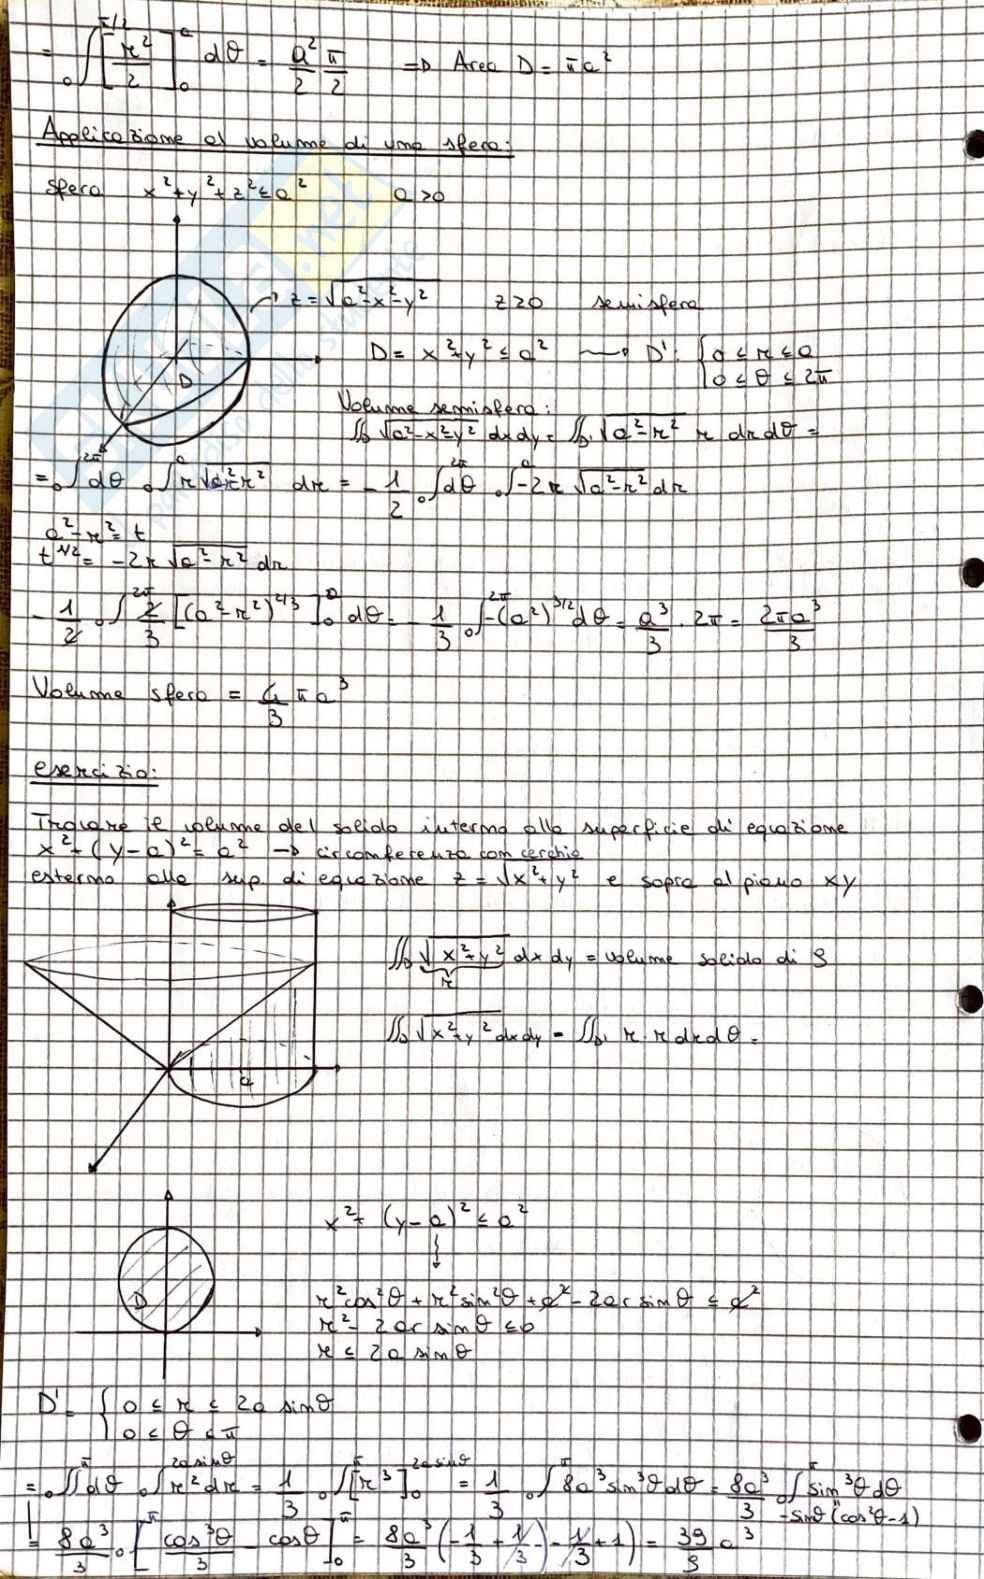 = ∫₀^{π/2} [r²/2]₀^a dθ = a²/2 π/2 => Area D = πa²
Applicazione al volume di una sfera:
sfera x²+y²+z² ≤ a² a>0
z = √(a²-x²-y²) z≥0 semisfera
D = x²+y² ≤ a² → D': { 0 ≤ r ≤ a
0 ≤ θ ≤ 2π
D
Volume semisfera:
∬_D √(a²-x²-y²) dxdy = ∬_D' √(a²-r²) r drdθ =
= ∫₀^{2π} dθ ∫₀^a r√(a²-r²) dr = -1/2 ∫₀^{2π} dθ ∫₀^a -2r √(a²-r²) dr
a²-r² = t
t^{1/2} = -2r √(a²-r²) dr
-1/2 ∫₀^{2π} 2/3 [(a²-r²)^{2/3}]₀^a dθ = -1/3 ∫₀^{2π} -(a²)^{3/2} dθ = a³/3 · 2π = 2πa³/3
Volume sfera = 4/3 πa³
esercizio:
Trovare il volume del solido interno alla superficie di equazione
x²+(y-a)² = a² → circonferenza con cerchio
esterno alla sup. di equazione z = √(x²+y²) e sopra al piano xy
∬_D √(x²+y²) dxdy = volume solido di S
r
∬_D √(x²+y²) dxdy = ∬_D' r·r drdθ =
a
x²+(y-a)² ≤ a²
D
r²cos²θ + r²sin²θ + a² - 2ar sinθ ≤ a²
r² - 2ar sinθ ≤ 0
r ≤ 2a sinθ
D' = { 0 ≤ r ≤ 2a sinθ
0 ≤ θ ≤ π
= ∫₀^π dθ ∫₀^{2a sinθ} r² dr = 1/3 ∫₀^π [r³]₀^{2a sinθ} = 1/3 ∫₀^π 8a³sin³θ dθ = 8a³/3 ∫₀^π sin³θ dθ
-sinθ(cos²θ-1)
= 8a³/3 [cos³θ/3 - cosθ]₀^π = 8a³/3 (-1/3 + 1 - 1/3 + 1) = 39/9 a³